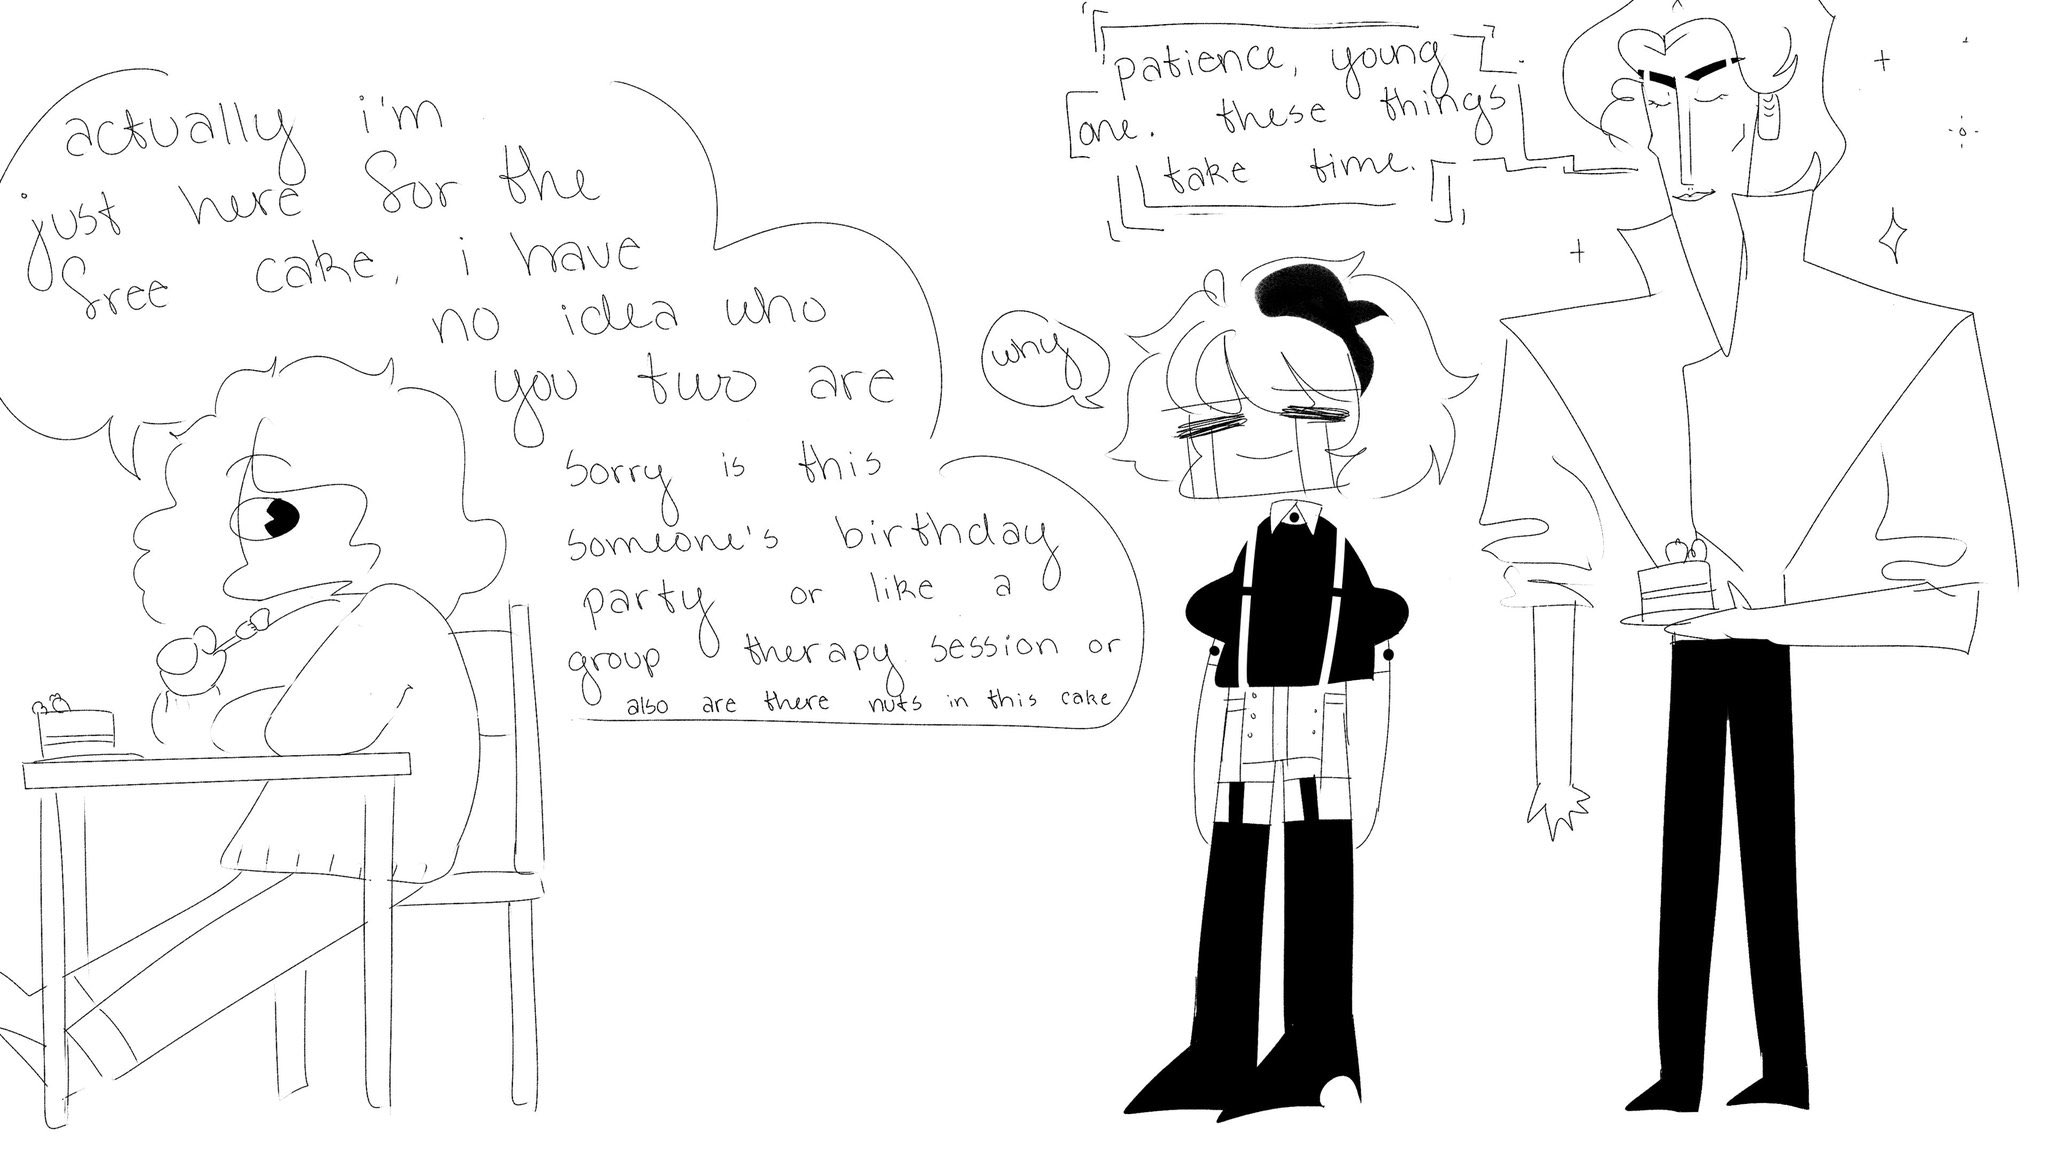 actually i'm
just here for the
free cake, i have
no idea who
you two are
sorry is this
someone's birthday
party or like a
group therapy session or
also are there nuts in this cake
why
patience, young
one. these things
take time.